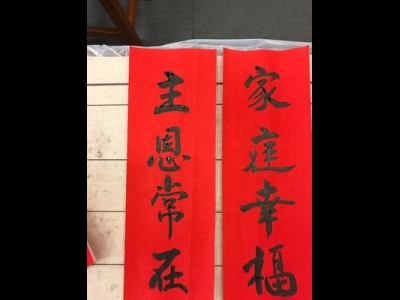 家庭幸福
主恩常在